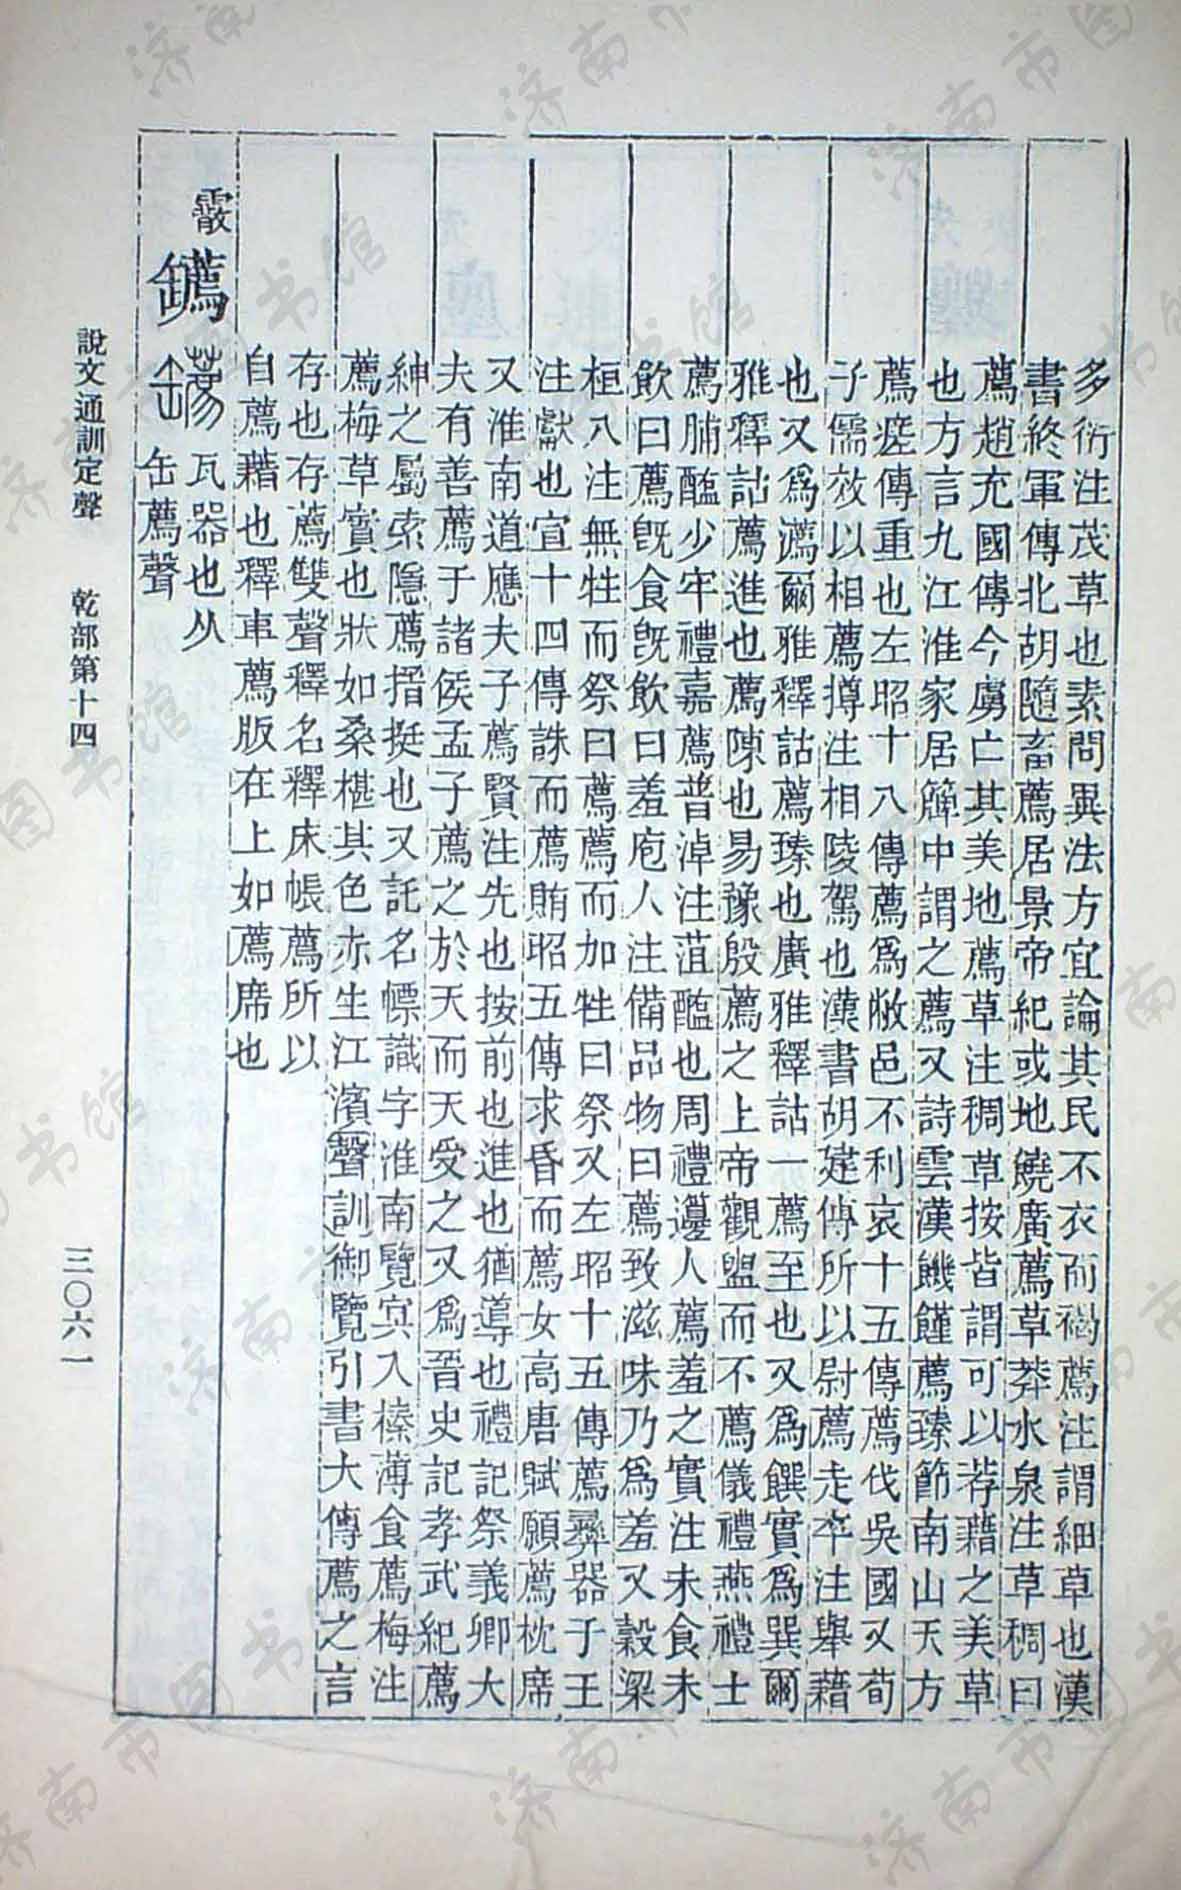 多衍注茂草也素問異法方宜論其民不衣而褐薦注謂細草也漢
書終軍傳北胡隨畜薦居景帝紀或地饒廣薦草莽水泉注草稠曰
薦趙充國傳今虜亡其美地薦草注稠草按皆謂可以荐藉之美草
也方言九江淮家居簰中謂之薦又詩雲漢饑饉薦臻節南山天方
薦瘥傳重也左昭十八傳薦為敝邑不利哀十五傳薦伐吳國又荀
子儒效以相薦撙注相陵駕也漢書胡建傳所以尉薦走卒注舉藉
也又為瀳爾雅釋詁薦臻也廣雅釋詁一薦至也又為饌實為巽爾
雅釋詁薦進也薦陳也易豫殷薦之上帝觀盥而不薦儀禮燕禮士
薦脯醢少牢禮嘉薦普淖注菹醢也周禮籩人薦羞之實注未食未
飲曰薦既食既飲曰羞庖人注備品物曰薦致滋味乃為羞又穀梁
桓八注無牲而祭曰薦薦而加牲曰祭又左昭十五傳薦彝器于王
注獻也宣十四傳誅而薦賄昭五傳求昏而薦女高唐賦願薦枕席
又淮南道應夫子薦賢注先也按前也進也猶導也禮記祭義卿大
夫有善薦于諸侯孟子薦之於天而天受之又為晉史記孝武紀薦
紳之屬索隱薦搢挺也又託名幖識字淮南覽冥入榛薄食薦梅注
薦梅草實也狀如桑椹其色赤生江濱聲訓御覽引書大傳薦之言
存也存薦雙聲釋名釋床帳薦所以
自薦藉也釋車薦版在上如薦席也
霰
瓦器也从
缶薦聲
說文通訓定聲 乾部第十四 三〇六一
济南市图书馆